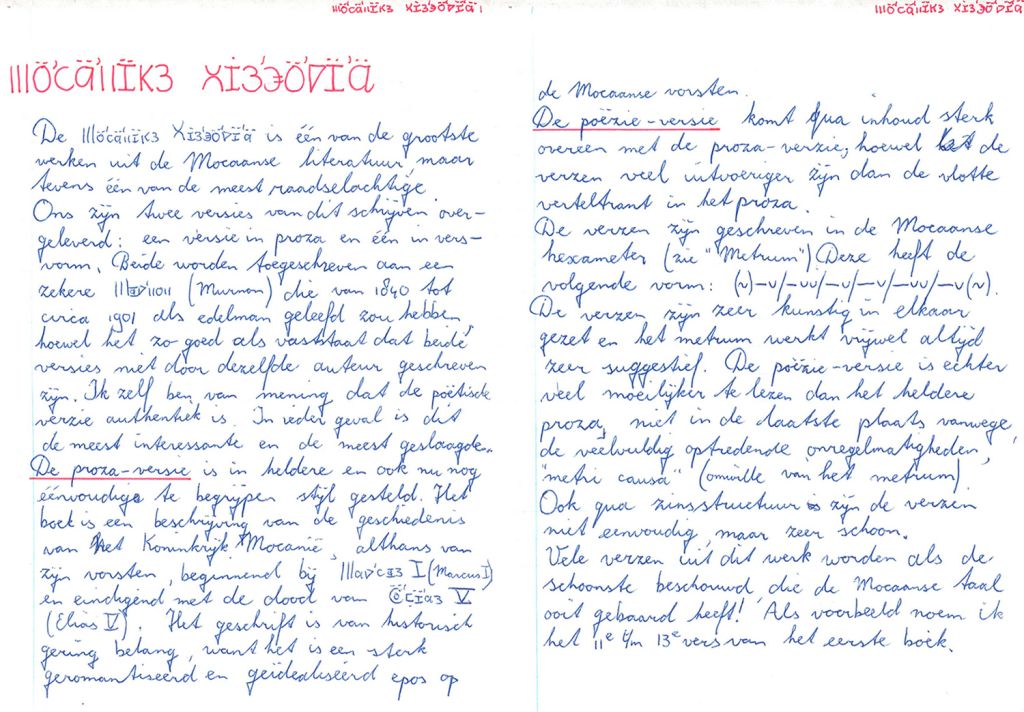 De
is één van de grootste
werken uit de Mocaanse literatuur, maar
tevens één van de meest raadselachtige.
Ons zijn twee versies van dit schrijven over-
geleverd: een versie in proza en één in vers-
vorm. Beide worden toegeschreven aan een
zekere (Murmon) die van 1840 tot
circa 1901 als edelman geleefd zou hebben,
hoewel het zo goed als vaststaat dat beide
versies niet door dezelfde auteur geschreven
zijn. Ik zelf ben van mening dat de poëtische
verzie authentiek is. In ieder geval is dit
de meest interessante en de meest geslaagde.
De proza-versie is in heldere en ook nu nog
éénvoudig te begrijpen stijl gesteld. Het
boek is een beschrijving van de geschiedenis
van het Koninkrijk Mocanië, althans van
zijn vorsten, beginnend bij I (Marcus I)
en eindigend met de dood van V
(Elias V). Het geschrift is van historisch
gering belang, want het is een sterk
geromantiseerd en geïdealiseerd epos op
de Mocaanse vorsten.
De poëzie-versie komt qua inhoud sterk
overeen met de proza-verzie, hoewel de
verzen veel uitvoeriger zijn dan de vlotte
verteltrant in het proza.
De verzen zijn geschreven in de Mocaanse
hexameter (zie "Metrum") Deze heeft de
volgende vorm: (∪)–∪/–∪∪/–∪/–∪/–∪∪/–∪(∪).
De verzen zijn zeer kunstig in elkaar
gezet en het metrum werkt vrijwel altijd
zeer suggestief. De poëzie-versie is echter
veel moeilijker te lezen dan het heldere
proza, niet in de laatste plaats vanwege
de veelvuldig optredende onregelmatigheden,
"metri causa" (omwille van het metrum).
Ook qua zinsstructuur zijn de verzen
niet eenvoudig, maar zeer schoon.
Vele verzen uit dit werk worden als de
schoonste beschouwd, die de Mocaanse taal
ooit gebaard heeft! Als voorbeeld noem ik
het 11e t/m 13e vers van het eerste boek.